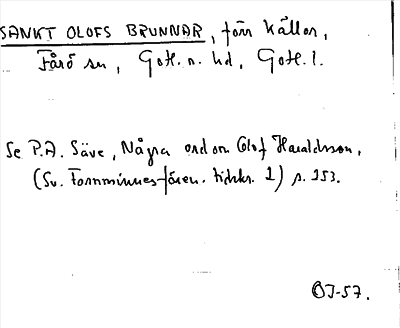 SANKT OLOFS BRUNNAR, förr källor,
Fårö sn, Gotl. n. hd, Gotl. l.
Se P.A. Säve, Några ord om Olof Haraldsson,
(Sv. Fornminnesfören. tidskr. 1) s. 253.
OJ-57.